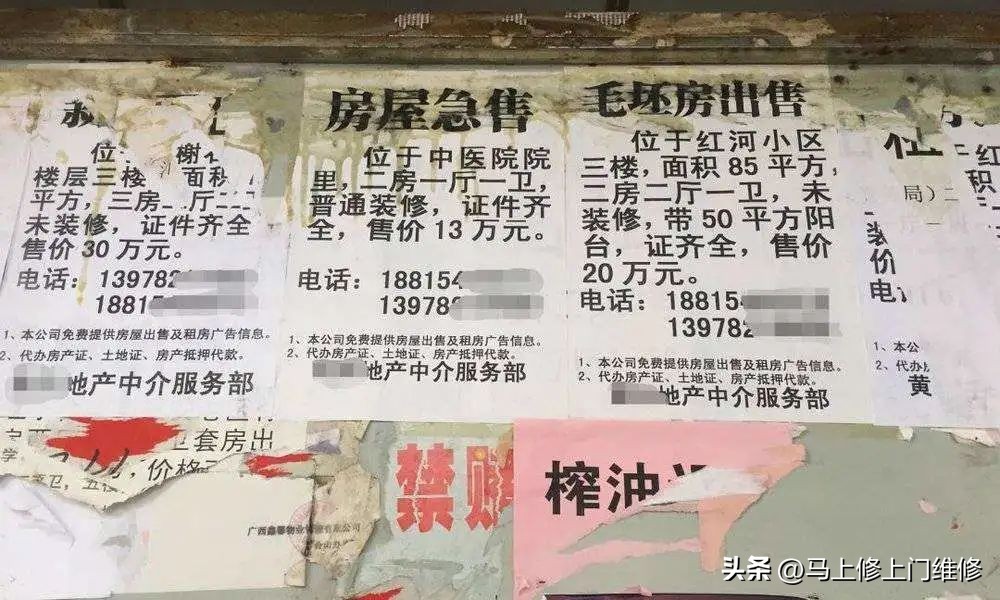 位 榭
楼层三楼 面积
平方,三房 厅
未装修,证件齐全
售价 30 万元。
电话:139782
1881
1、本公司免费提供房屋出售及租房广告信息。
2、代办房产证、土地证、房产抵押代款。
地产中介服务部
房屋急售
位于中医院院
里,二房一厅一卫,
普通装修,证件齐
全,售价 13 万元。
电话:188154
13978
1、本公司免费提供房屋出售及租房广告信息。
2、代办房产证、土地证、房产抵押代款。
地产中介服务部
毛坯房出售
位于红河小区
三楼,面积 85 平方,
二房二厅一卫,未
装修,带 50 平方阳
台,证齐全,售价
20 万元。
电话:188154
139782
1、本公司免费提供房屋出售及租房广告信息。
2、代办房产证、土地证、房产抵押代款。
地产中介服务部
位
红
积
局)二
装
价
电
1、本公
2、代办
黄
卫套房出
学
价格
广西鑫馨物业 有限公司
禁赌
榨油
头条 @马上修上门维修